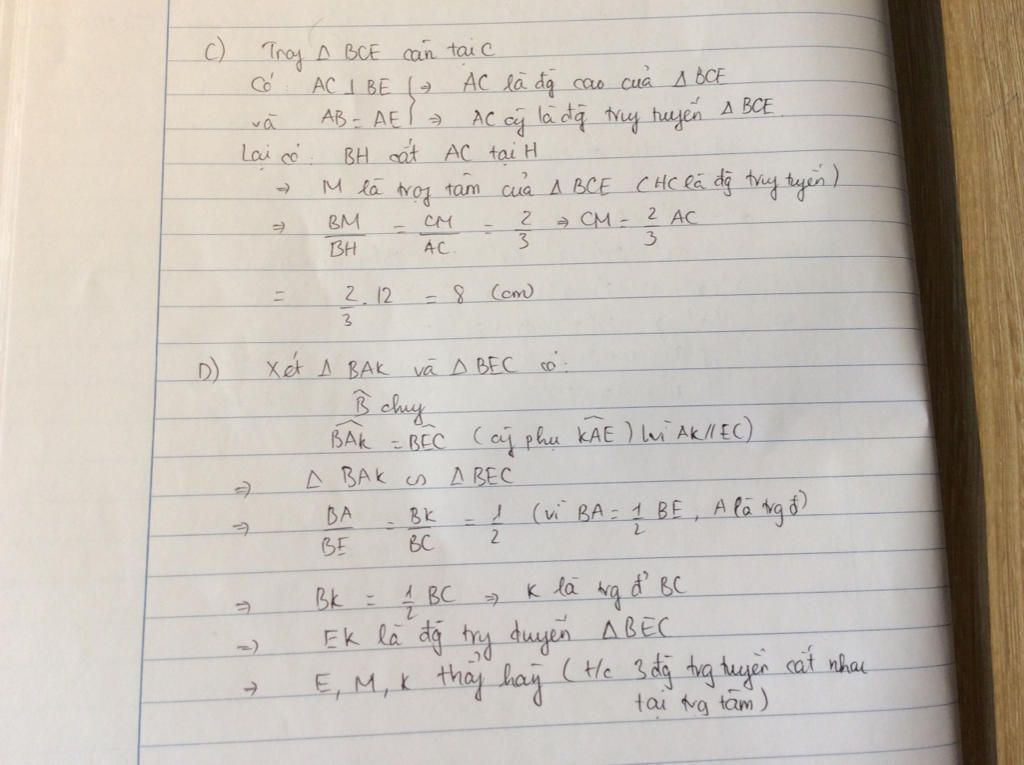 C) Trog Δ BCE cân tại C
Có: AC ⊥ BE } → AC là đg̃ cao của Δ BCE
và AB = AE } ⇒ AC cg̃ là đg̃ truy tuyến Δ BCE.
Lại có: BH cắt AC tại H
→ M là trọg tâm của Δ BCE (HC là đg̃ truy tuyến)
⇒ BM/BH = CM/AC = 2/3 → CM = 2/3 AC
= 2/3 . 12 = 8 (cm)
D) Xét Δ BAK và Δ BEC có:
B̂ chug
B̂AK = B̂EC (cg̃ phụ K̂AE) (vì AK//EC)
⇒ Δ BAK ∽ Δ BEC
⇒ BA/BE = BK/BC = 1/2 (vì BA = 1/2 BE, A là trg đ')
⇒ BK = 1/2 BC ⇒ K là trg đ' BC
⇒ EK là đg̃ try tuyến Δ BEC
→ E, M, K thẳg hàg (t/c 3 đg̃ trg tuyến cắt nhau
tại trg tâm)